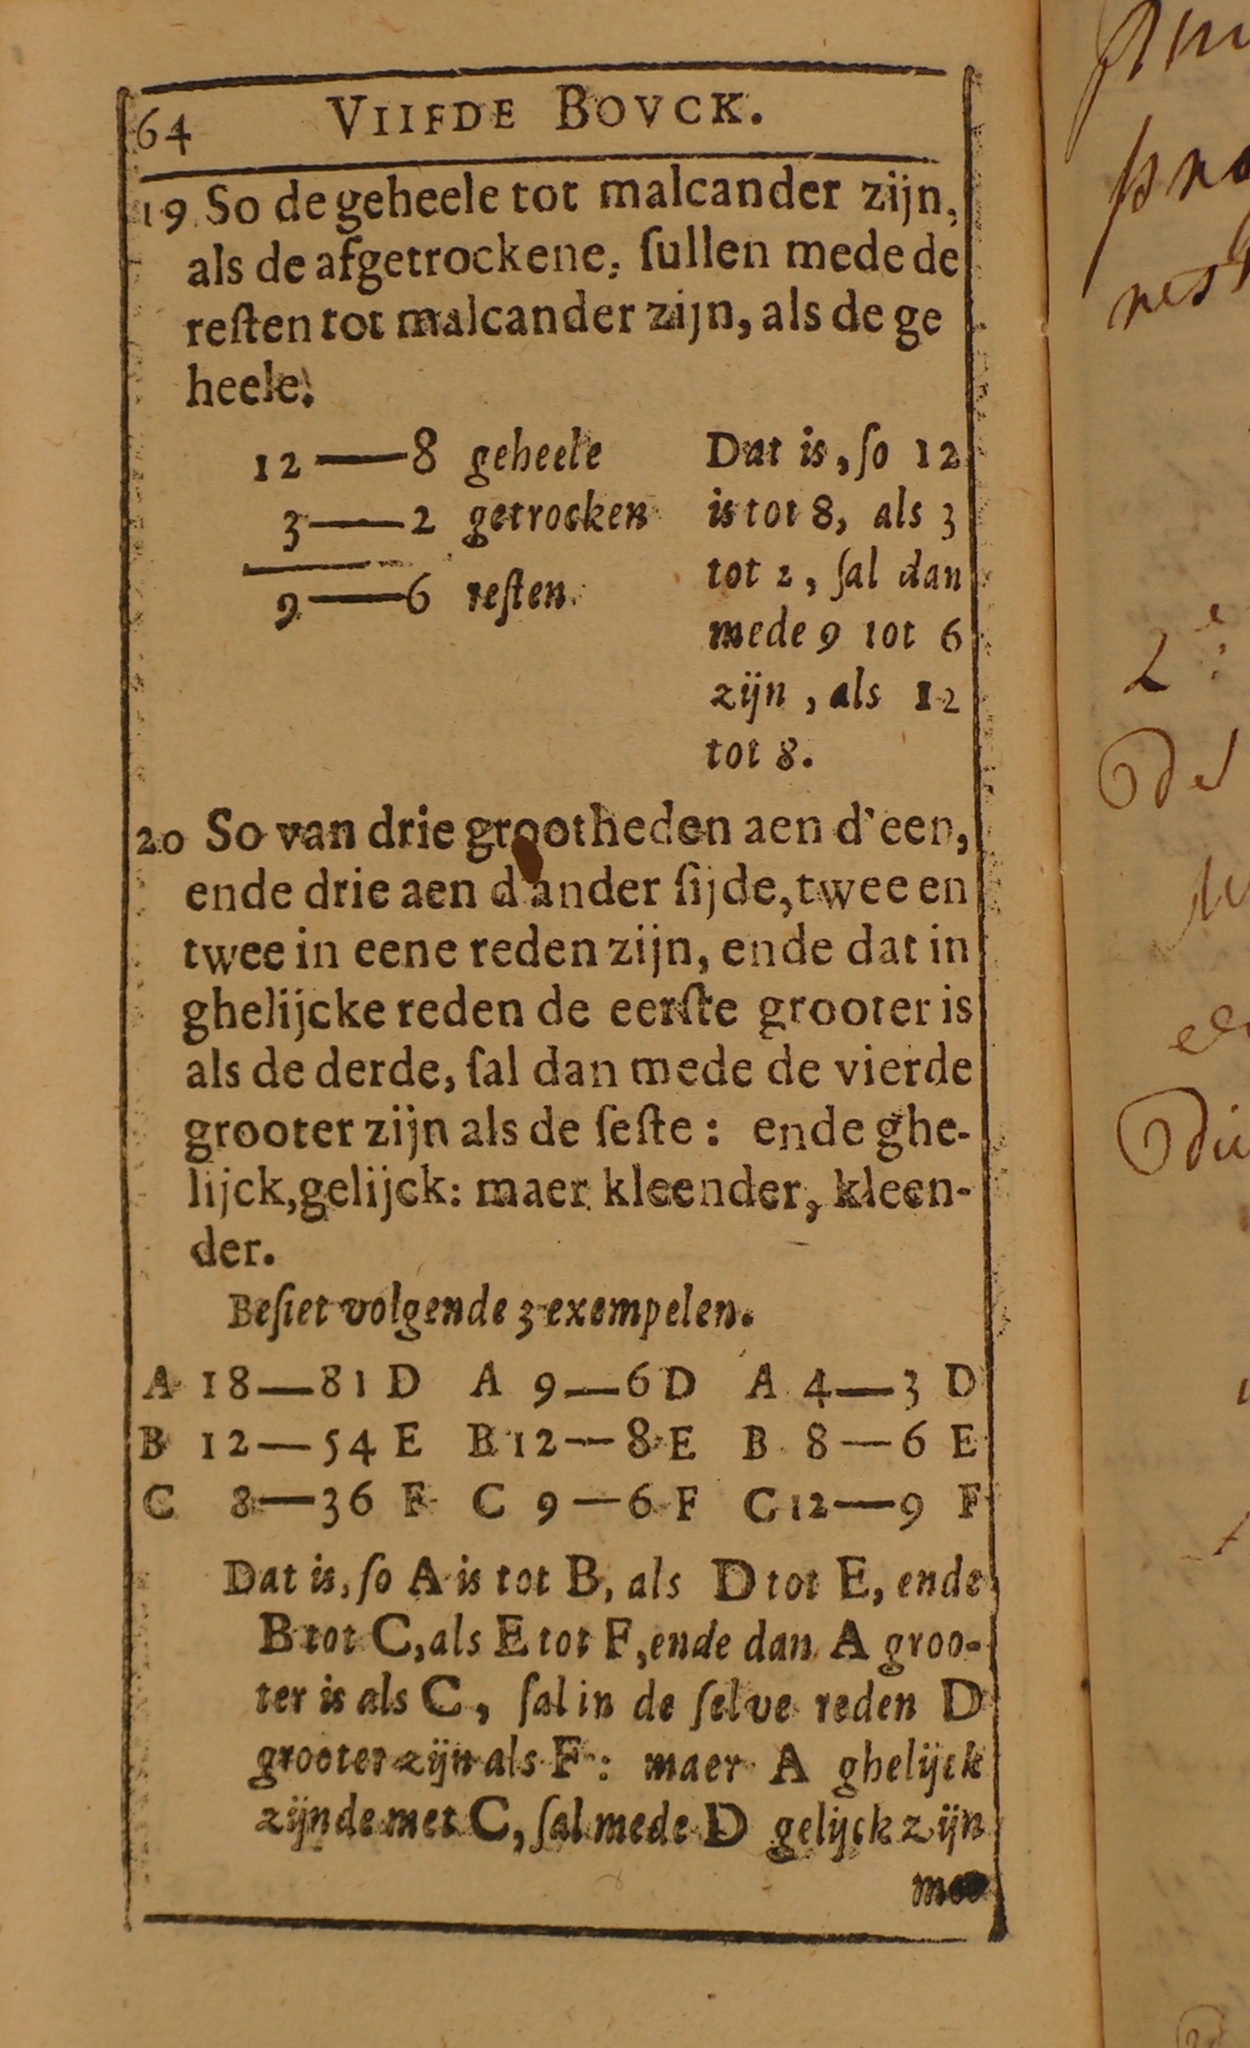 64 VIIFDE BOVCK.
19 So de geheele tot malcander zijn,
als de afgetrockene, ſullen mede de
reſten tot malcander zijn, als de ge
heele.
12—8 geheele
3—2 getrocken
9—6 reſten.
Dat is, ſo 12
is tot 8, als 3
tot 2, ſal dan
mede 9 tot 6
zijn, als 12
tot 8.
20 So van drie grootheden aen d'een,
ende drie aen d'ander ſijde, twee en
twee in eene reden zijn, ende dat in
ghelijcke reden de eerſte grooter is
als de derde, ſal dan mede de vierde
grooter zijn als de ſeſte: ende ghe-
lijck, gelijck: maer kleender, kleen-
der.
Beſiet volgende 3 exempelen.
A 18—81 D A 9—6 D A 4—3 D
B 12—54 E B 12—8 E B 8—6 E
C 8—36 F C 9—6 F C 12—9 F
Dat is, ſo A is tot B, als D tot E, ende
B tot C, als E tot F, ende dan A groo-
ter is als C, ſal in de ſelve reden D
grooter zijn als F: maer A ghelijck
zijnde met C, ſal mede D gelijck zijn
2e